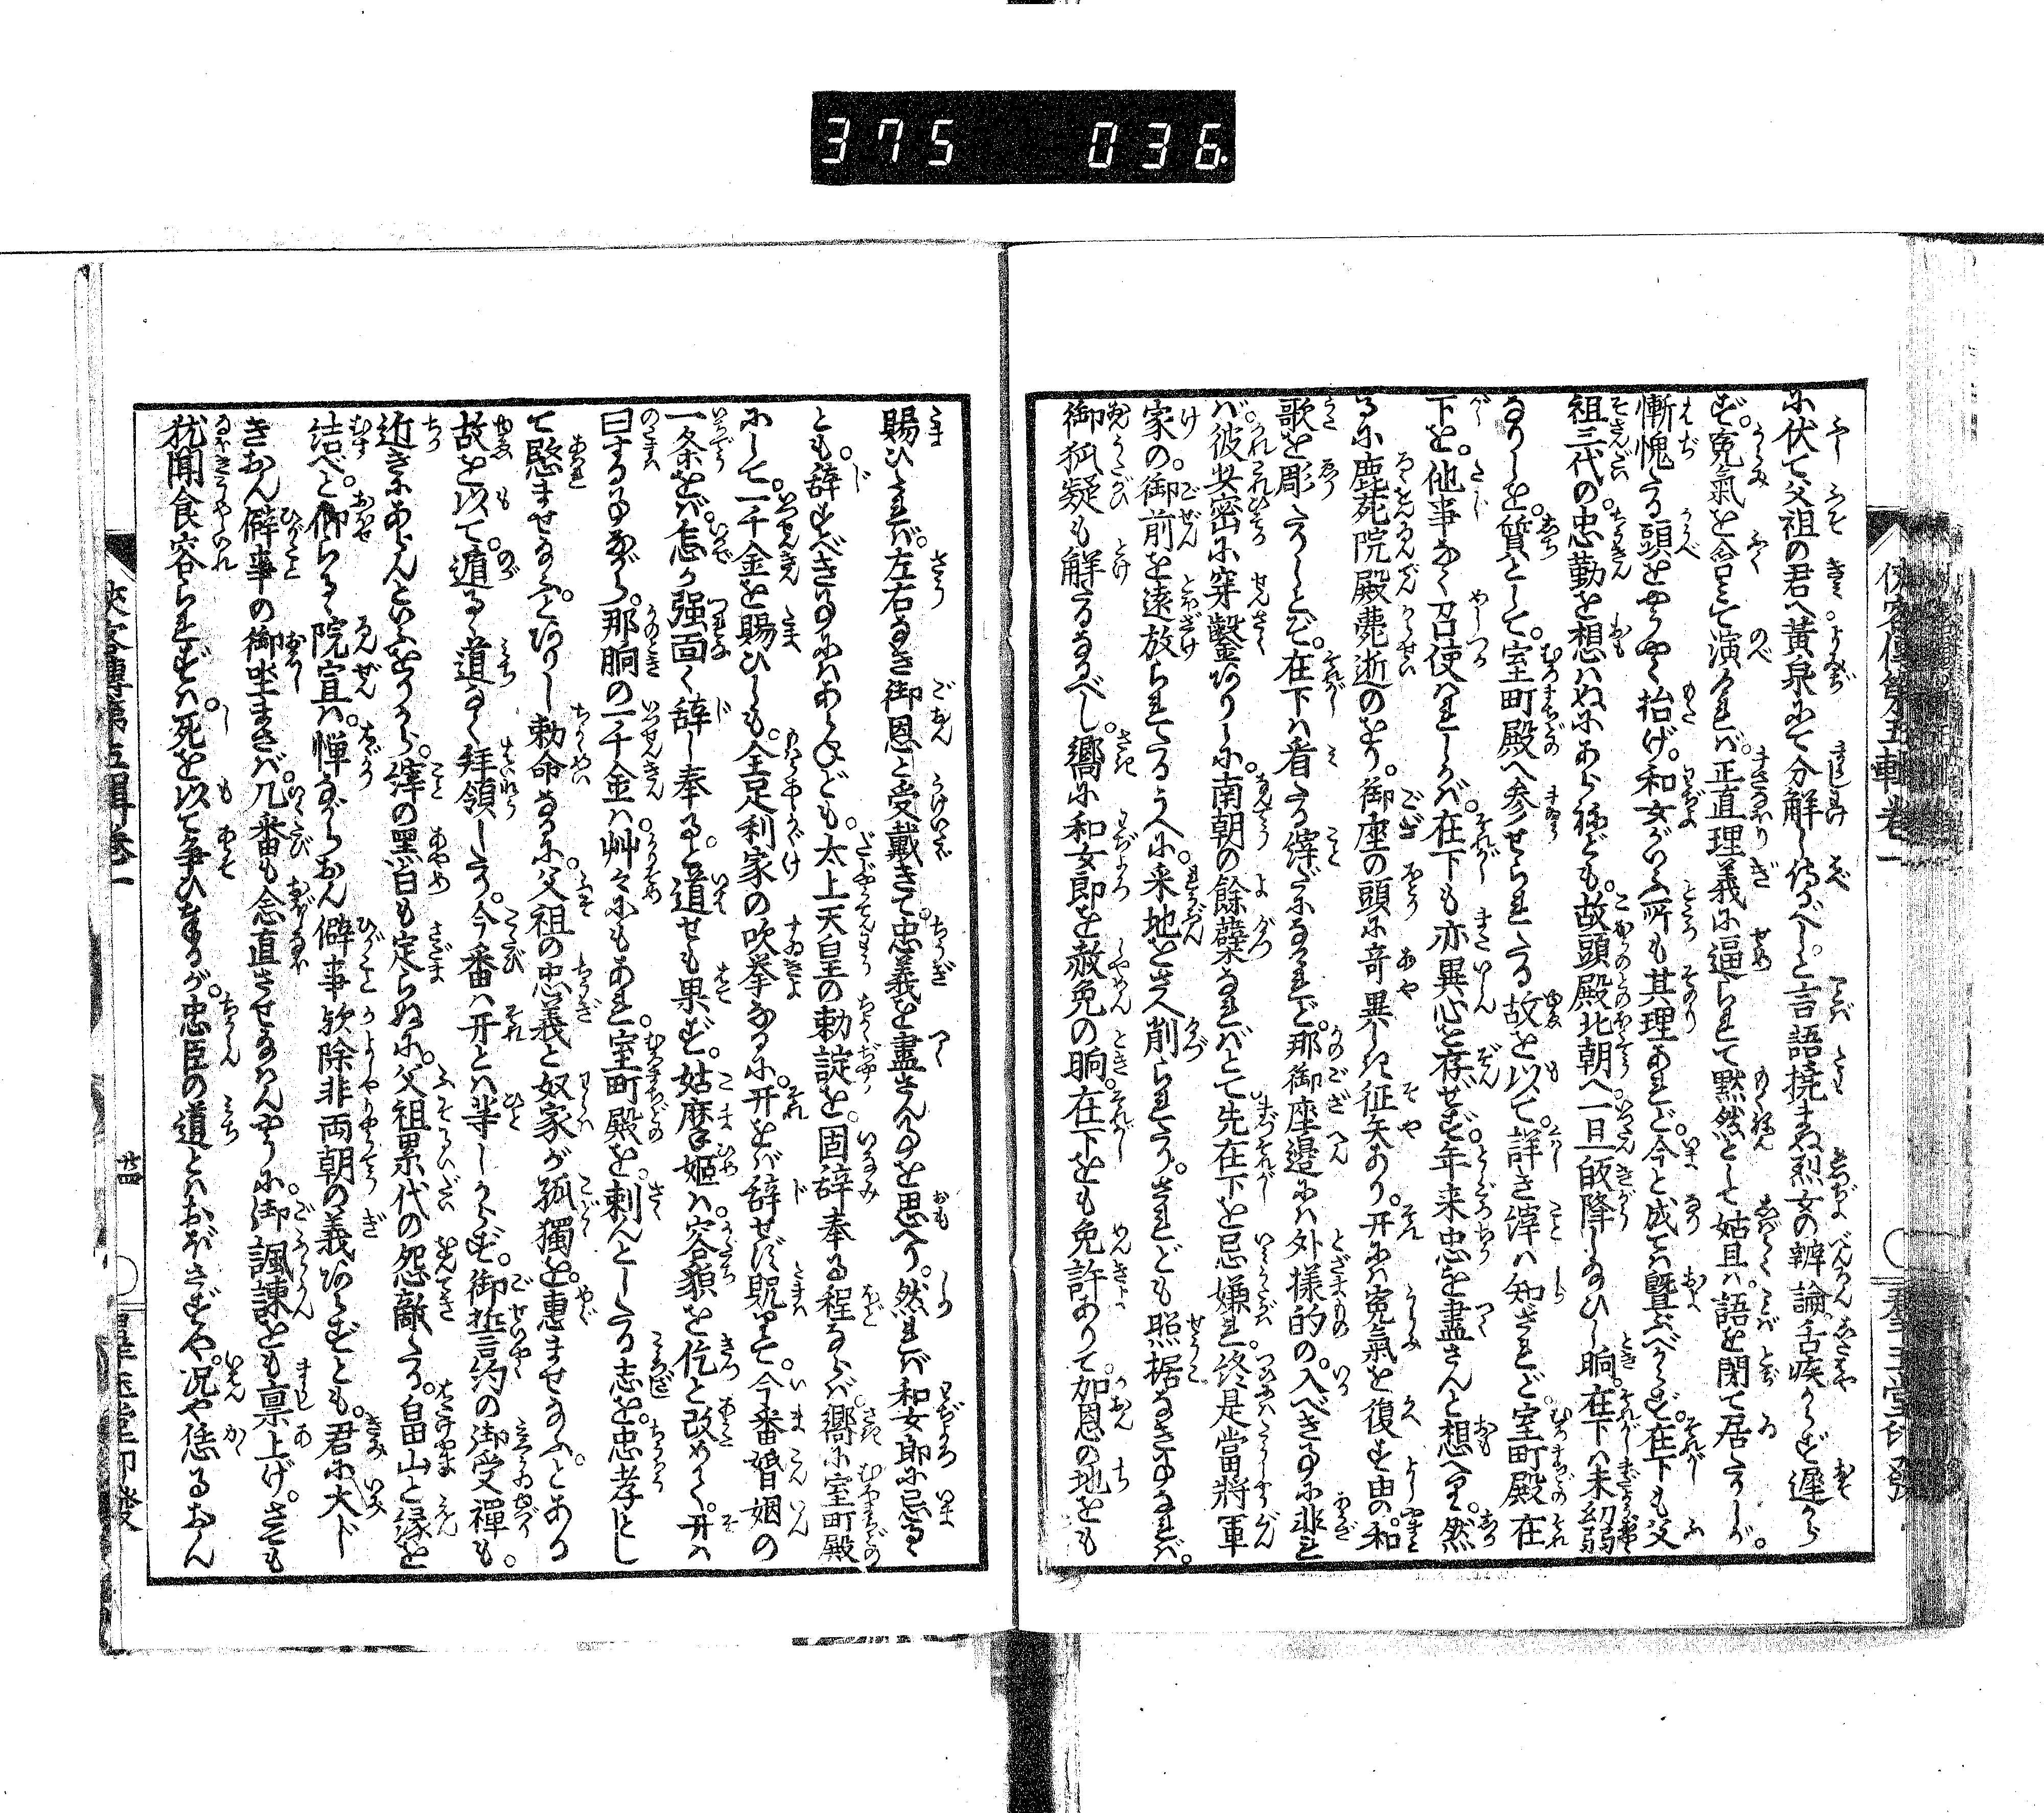 375 036
侠客傳第五輯卷一
に伏て父祖の君へ黄泉にて分解し侍るべしと言語撓まぬ烈女の辨論舌疾からず遲から
ず。寃氣を含みて演ければ。正直理義に逼られて黙然として姑且は。語を閉て居たりしが。
慚愧たる頭をやうやく抬げ。和女がいふ所も其理あれど。今と成ては曁ぶべからず。在下も父
祖三代の。忠勤を想はぬにあらねども。故頭殿北朝へ一旦皈降し給ひし晌。在下は未幼弱
なりしを。質として。室町殿へ參せられたる故を以て。詳き縡は知ざれど。室町殿在
下を。他事なく召使はれしかば。在下も亦異心を存ぜず。年来忠を盡さんと想へり。然
るに鹿苑院殿薨逝のをり。御座の頭に奇異しき征矢あり。开には寃氣を復す由の。和
歌を彫たりしとぞ。在下は看たる縡だになけれど。那御座邊には外様的の。入べきに非れ
ば。彼此密に穿鑿ありしに。南朝の餘孽なればとて先在下を忌嫌れ。終是當將軍
家の。御前を遠放られたるうへに。采地をさへ削られたり。されども照据なき事なれば。
御狐疑も解たるなるべし。嚮に和女郎を赦免の晌。在下をも免許ありて。加恩の地をも
賜ひたれば。左右なき御恩と受戴きて。忠義を盡さん事を思へり。然れば和女郎に忌るゝ
とも。辞すべき事にはあらねども。太上天皇の勅諚を。固辞奉る程ならば。嚮に室町殿
にして。一千金を賜ひしも。全足利家の吹挙なるに。开をば辞せず賜りて。今番婚姻の
一条をば。怎で强面く辞し奉ると。道せも果ず。姑摩姫は。容貌を佗と改めて。开は
曰することながら。那晌の一千金は。艸々にもあれ。室町殿を。刺んとしたる志を。忠孝とし
て愍ませ給ふ。とありし勅命なるに。父祖の忠義と奴家が孤獨を。惠ませ給ふ。とある
故を以て。遁るゝ道なく拜領したり。今番は开とは等しからず。御誓言約の御受禪も。
近きにあらんといふをりから。縡の黑白も定らぬに。父祖累代の怨敵たる。畠山と緣を
結べと。仰らるゝ院宣は。憚ながらおん僻事欤除非両朝の義ならずとも。君に大じ
きおん僻事の御坐まさば。几番も念直させ給はんやうに。御諷諫をも禀上げ。さても
犹聞食容られずは。死を以て争ひ奉るが。忠臣の道とはおぼさずや。况や恁るおん
侠客傳第五輯卷一
廿四